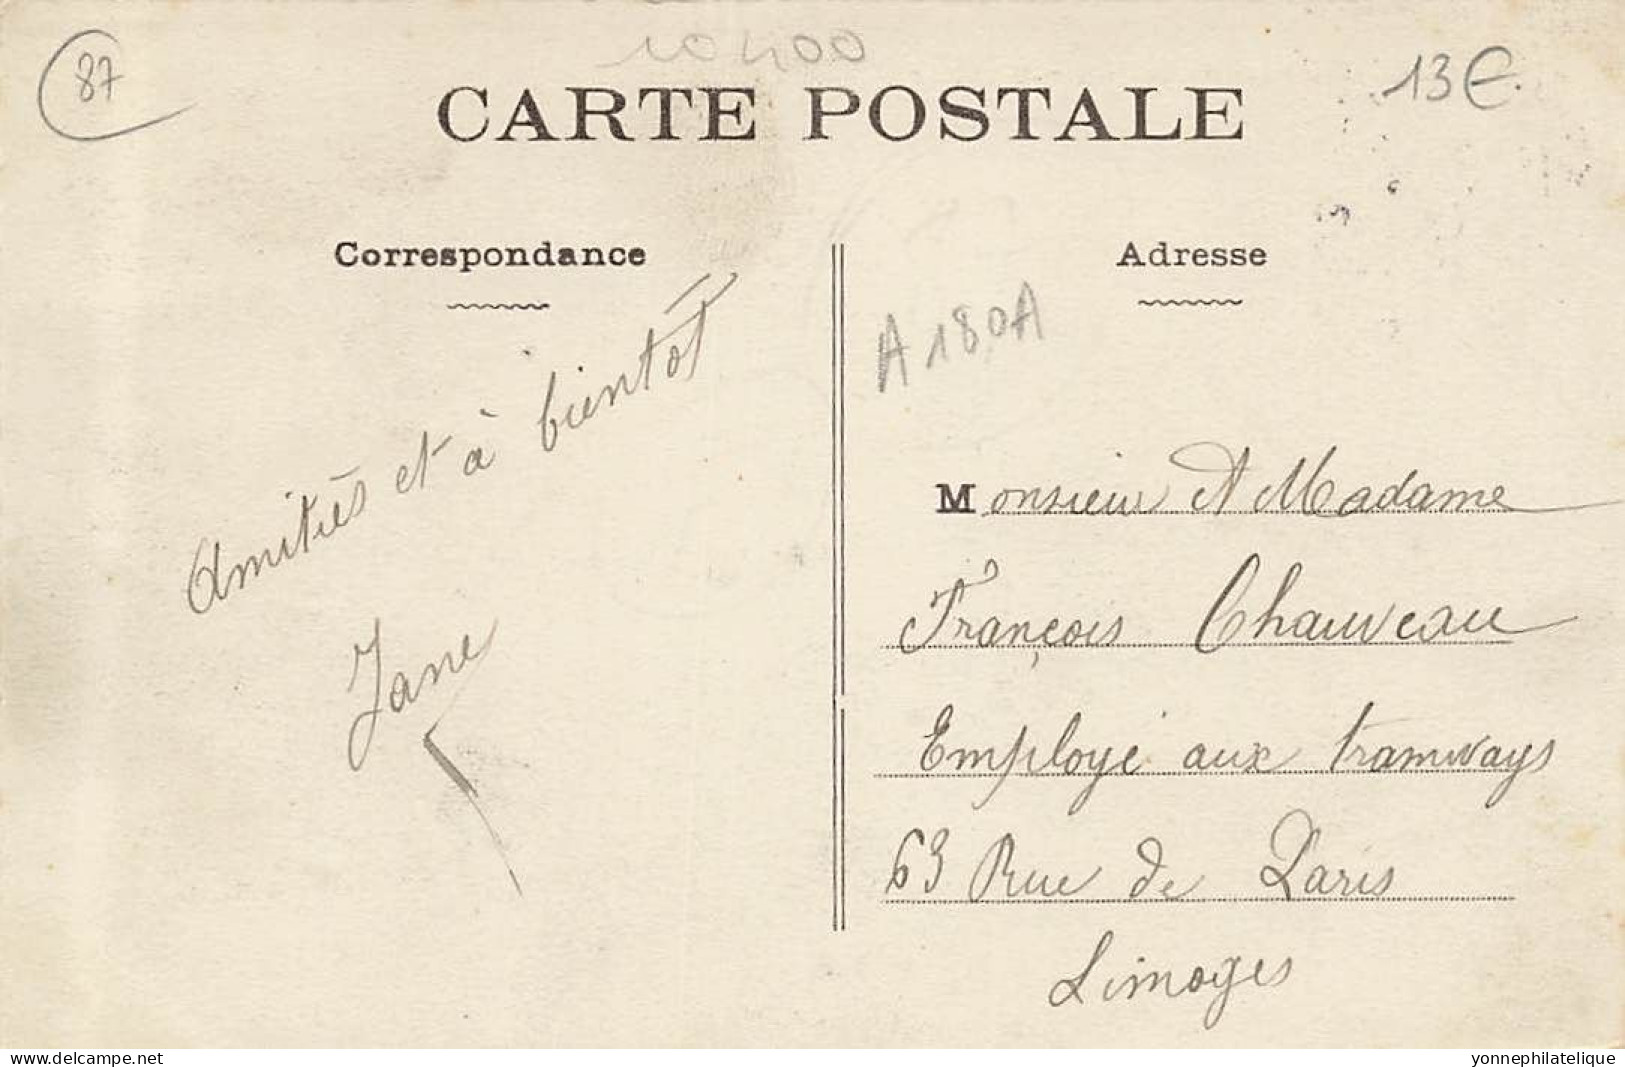 87
10400
13€
CARTE POSTALE
Correspondance
Amitiés et à bientôt
Jane
Adresse
A 180A
Monsieur et Madame
François Chauveau
Employé aux tramways
63 Rue de Paris
Limoges
www.delcampe.net
yonnephilatelique